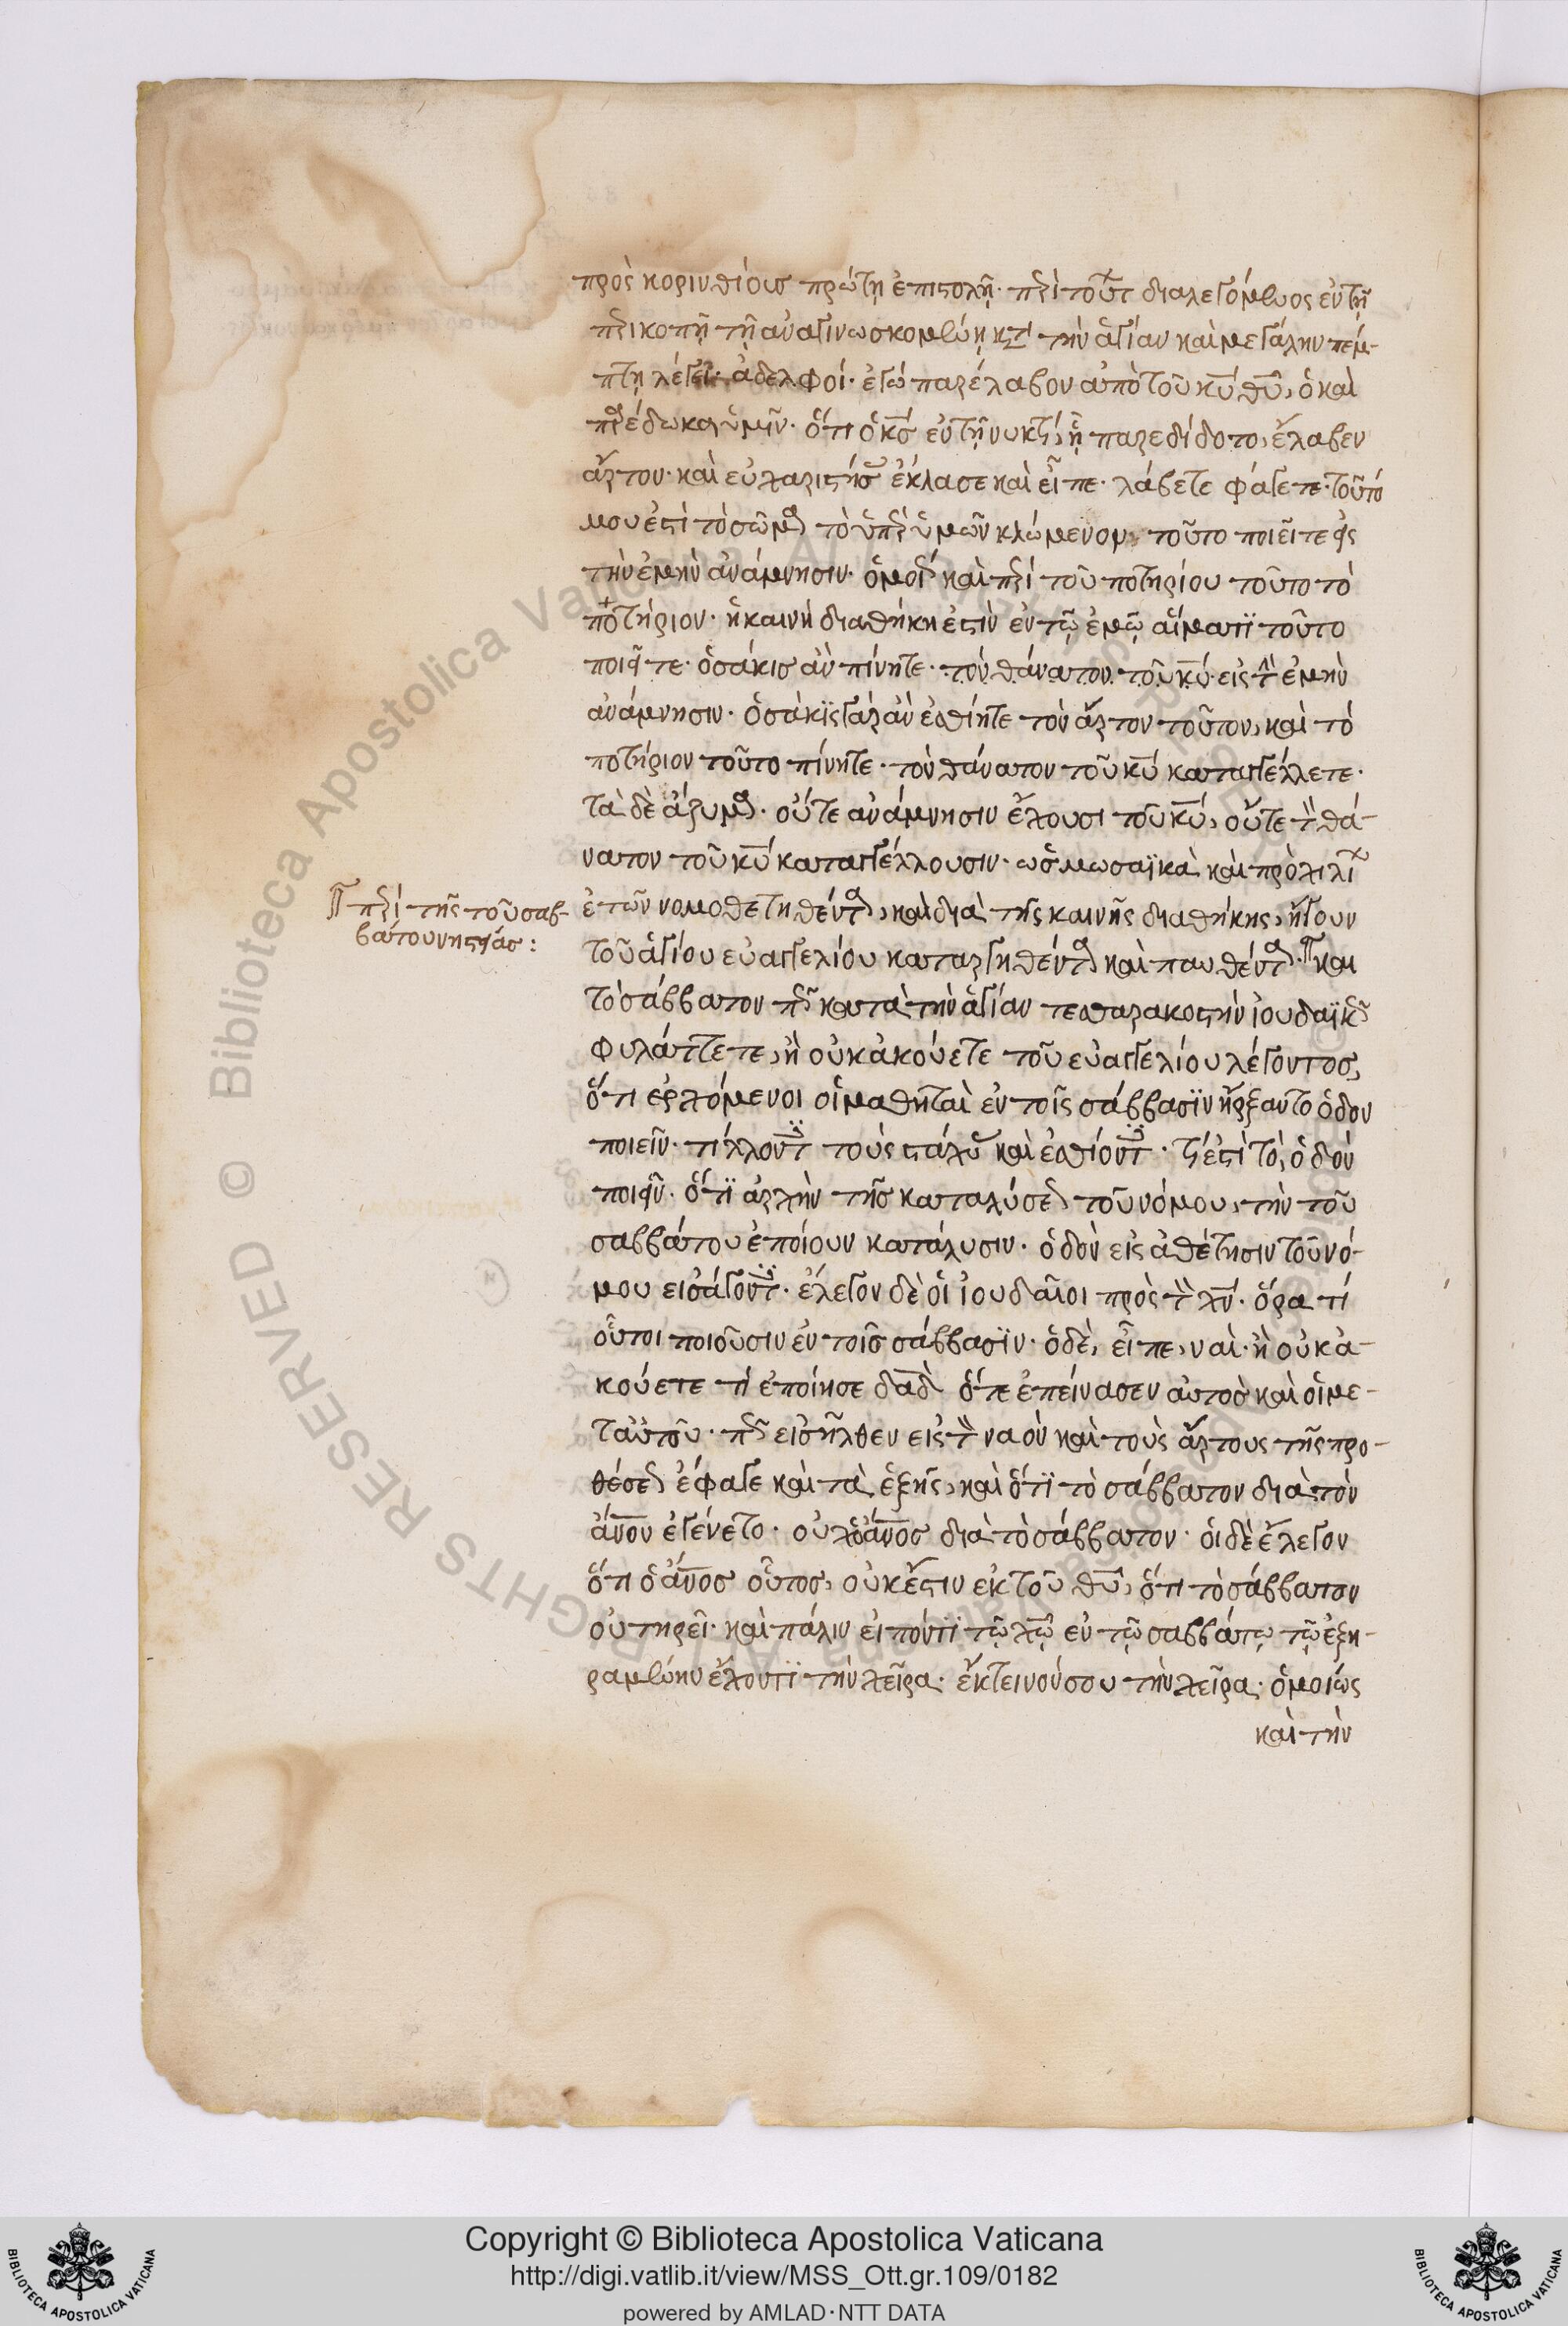 πρὸς κορινθίους πρώτη ἐπιστολῇ· περὶ τούτου διαλεγόμενος ἐν τῇ
περικοπῇ τῇ ἀναγινωσκομένῃ κατὰ τὴν ἁγίαν καὶ μεγάλην πέμ-
πτη λέγει· ἀδελφοί· ἐγώ παρέλαβον ἀπὸ τοῦ κυ θυ, ὁ καὶ
παρέδωκα ὑμῖν· ὅτι ὁ κς ἐν τῇ νυκτί, ᾗ παρεδίδοτο, ἔλαβεν
ἄρτον· καὶ εὐχαριστήσας ἔκλασε καὶ εἶπε· λάβετε φάγετε· τοῦτό
μου ἐστὶ τὸ σῶμα τὸ ὑπὲρ ὑμῶν κλώμενον, τοῦτο ποιεῖτε εἰς
τὴν ἐμὴν ἀνάμνησιν· ὁμοῦ καὶ περὶ τοῦ ποτηρίου τοῦτο τὸ
ποτήριον· ἡ καινὴ διαθήκη ἐστὶν ἐν τῷ ἐμῷ αἵματϊ τοῦτο
ποιεῖτε· ὁσάκις ἂν πίνητε· τὸν θάνατον τοῦ κυ· εἰς τὴν ἐμὴν
ἀνάμνησιν· ὁσάκϊς γὰρ ἂν ἐσθίητε τὸν ἄρτον τοῦτον, καὶ τὸ
ποτήριον τοῦτο πίνητε· τὸν θάνατον τοῦ κυ καταγγέλλετε·
τὰ δὲ ἄζυμα· οὔτε ἀνάμνησιν ἔχουσι τοῦ κυ, οὔτε τὸν θά-
νατον τοῦ κυ καταγγέλλουσιν· ὡς μωσαϊκὰ καὶ πρὸ χιλί
ἐτῶν νομοθετηθέντα, καὶ διὰ τῆς καινῆς διαθήκης, ἤγουν
περὶ τῆς τοῦ σαβ-
βάτου νηστείας:
τοῦ ἁγίου εὐαγγελίου καταργηθέντα καὶ παυθέντα· καὶ
τὸ σάββατον πῶς κατὰ τὴν ἁγίαν τεσσαρακοστὴν ἰουδαϊκῶς
φυλάττετε, ἢ οὐκ ἀκούετε τοῦ εὐαγγελίου λέγοντος,
ὅτι ἐρχόμενοι οἱ μαθηταὶ ἐν τοῖς σάββασϊν ἤρξαντο ὁδον
ποιεῖν· τίλλοντες τοὺς στάχυς καὶ ἐσθίοντες· τί ἐστὶ τὸ, ὁδὸν
ποιεῖν· ὅτϊ ἀρχὴν τῆς καταλύσεως τοῦ νόμου, τὴν τοῦ
σαββάτου ἐποίουν κατάλυσιν· ὁδὸν εἰς ἀθέτησιν τοῦ νό-
μου εἰσάγοντες· ἔλεγον δὲ οἱ ἰουδαῖοι πρὸς τὸν χν· ὅρα τί
οὗτοι ποιοῦσιν ἐν τοῖς σάββασϊν· ὁ δὲ, εἶπε, ναὶ· ἢ οὐκ ἀ-
κούετε τί ἐποίησε δαδ ὅτε ἐπείνασεν αὐτὸς καὶ οἱ με-
τ' αὐτοῦ· πῶς εἰσῆλθεν εἰς τὸν ναὸν καὶ τοὺς ἄρτους τῆς προ-
θέσεως ἔφαγε καὶ τὰ ἑξῆς, καὶ ὅτϊ τὸ σάββατον διὰ τὸν
ἄνον ἐγένετο· οὐχ ὁ ἄνος διὰ τὸ σάββατον· οἱ δὲ ἔλεγον
ὅτι ὁ ἄνος οὗτος, οὐκ ἔστιν ἐκ τοῦ θυ, ὅτι τὸ σάββατον
οὐ τηρεῖ· καὶ πάλιν εἰπόντϊ τῷ χῷ ἐν τῷ σαββάτῳ τῷ ἐξη-
ραμμένην ἔχοντϊ τὴν χεῖρα· ἔκτεινόν σου τὴν χεῖρα· ὁμοίως
καὶ τὴν
Copyright © Biblioteca Apostolica Vaticana
http://digi.vatlib.it/view/MSS_Ott.gr.109/0182
powered by AMLAD·NTT DATA